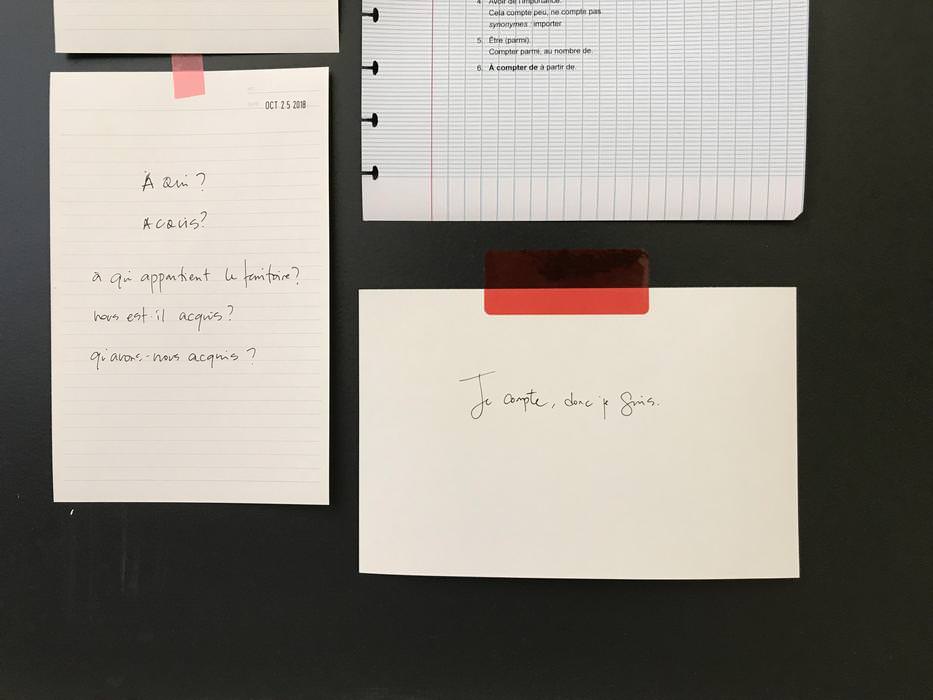 OCT 25 2018
À Qui?
ACQUIS?
à qui appartient le territoire?
nous est-il acquis?
qu'avons-nous acquis?
4. Avoir de l'importance.
Cela compte peu, ne compte pas.
synonymes : importer
5. Être (parmi).
Compter parmi, au nombre de.
6. À compter de à partir de.
Je compte, donc je suis.